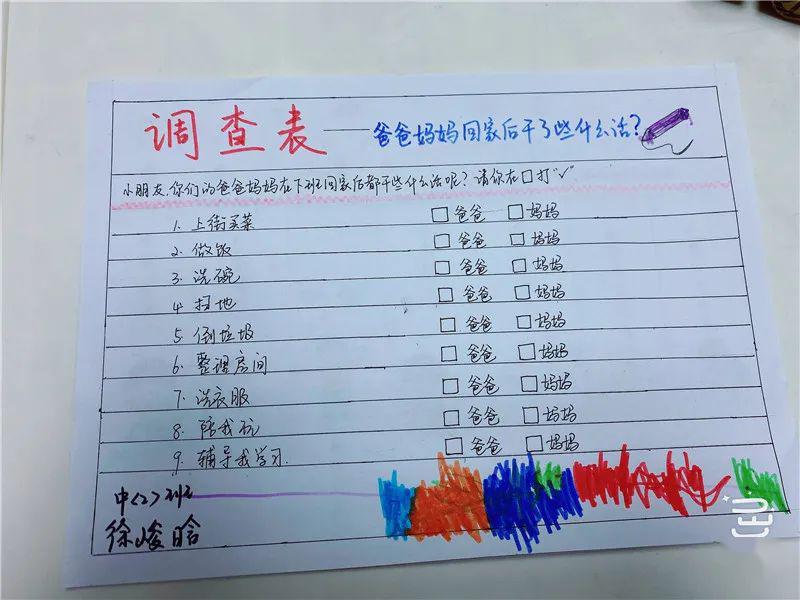 调查表——爸爸妈妈回家后干了些什么活?
小朋友你们的爸爸妈妈在下班回家后都干些什么活呢?请你在□打"√"
1. 上街买菜 □爸爸 □妈妈
2. 做饭 □爸爸 □妈妈
3. 洗碗 □爸爸 □妈妈
4. 扫地 □爸爸 □妈妈
5. 倒垃圾 □爸爸 □妈妈
6. 整理房间 □爸爸 □妈妈
7. 洗衣服 □爸爸 □妈妈
8. 陪我玩 □爸爸 □妈妈
9. 辅导我学习. □爸爸 □妈妈
中<2>班
徐峻晗